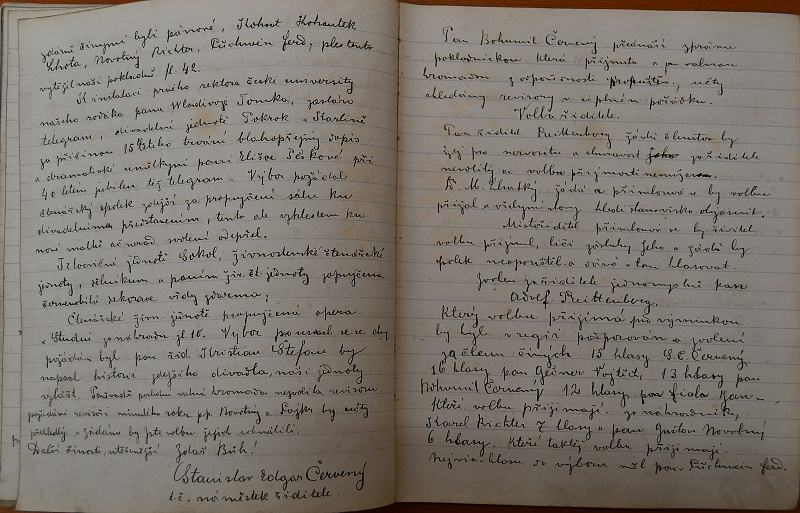 zdání činnými byli pánové, Kohout Kohoutek
Lhota, Novotný Richter, Püschwein Ferd, plesem
vytěžil naší pokladně fl. 42.
K instalaci prvého rektora české university
našeho rodáka pana Wladivoje Tomka, zaslán
telegram, divadelní jednotě Pokrok v Starkově
za příčinou 15tiletého trvání blahopřejný dopis
a dramatické umělkyni paní Elišce Peškové při
40 letém jubileu též telegram. Výbor požádal
čtenářský spolek zdejší za propůjčení sálu ku
divadelním představením, tento ale vzhledem ku
nové malbě až navád svolení odepřel.
Tělocvičné jednotě Sokol, živnostenské čtenářské
jednoty, dělníkům a paním živ. čt. jednoty zapůjčena
červenobílá dekorace vždy zdarma;
Čtenářské živn. jednotě propůjčena opera
Studni za náhradu zl 10. Výbor pp usnesl se aby
požádán byl pan řid. Kristian Stefan by
napsal historii zdejšího divadla, naší jednoty
zvlášť. Poněvadž poslední valná hromada nezvolila revisory
požádáni revisoři minulého roku p.p. Novotný a Lojker by účty
přehlédli a žádáno by jste volbu jejich schválili.
Další činosti, utěšenější Zdař Bůh!
Stanislav Edgar Červený
t.č. náměstek řiditele.
Pan Bohumil Červený přednáší zprávu
pokladnickou která přijmuta a pan valnou
hromadou z odpovědnosti propuštěn, účty
shledány revisory v úplném pořádku.
Volba řiditele.
Pan řiditel Reittenberg žádá členstvo by
jej pro nervositu a churavost za řiditele
nevolily a volbu přijmouti nemůže.
D. M. žádá a přimlouvá se by volbu
přijal a vždy milovný hledí stanovisko objasnit.
Místořiditel přimlouvá se by řiditel
volbu přijmul, líčí zásluhy Jeho a žádá by
spolek neopouštěl a dává o tom hlasovat.
Zvolen za řiditele jednomyslně pan
Adolf Reittenberg.
Který volbu přijímá pod výminkou
by byl v regii podporován a zvoleni
za členy činných 15 hlasy S. E. Červený.
16 hlasy pan Geiner Vojtěch, 13 hlasy pan
Bohumil Červený 12 hlasy pan Fiala Jan,
Kteří volbu přijímají. za náhradníky
Karel Richter 7 hlasy a pan Gustav Novotný
6 hlasy. Kteří taktéž volbu přijímají.
Nejvíce hlasů do výboru měl pan Püschwein Ferd.